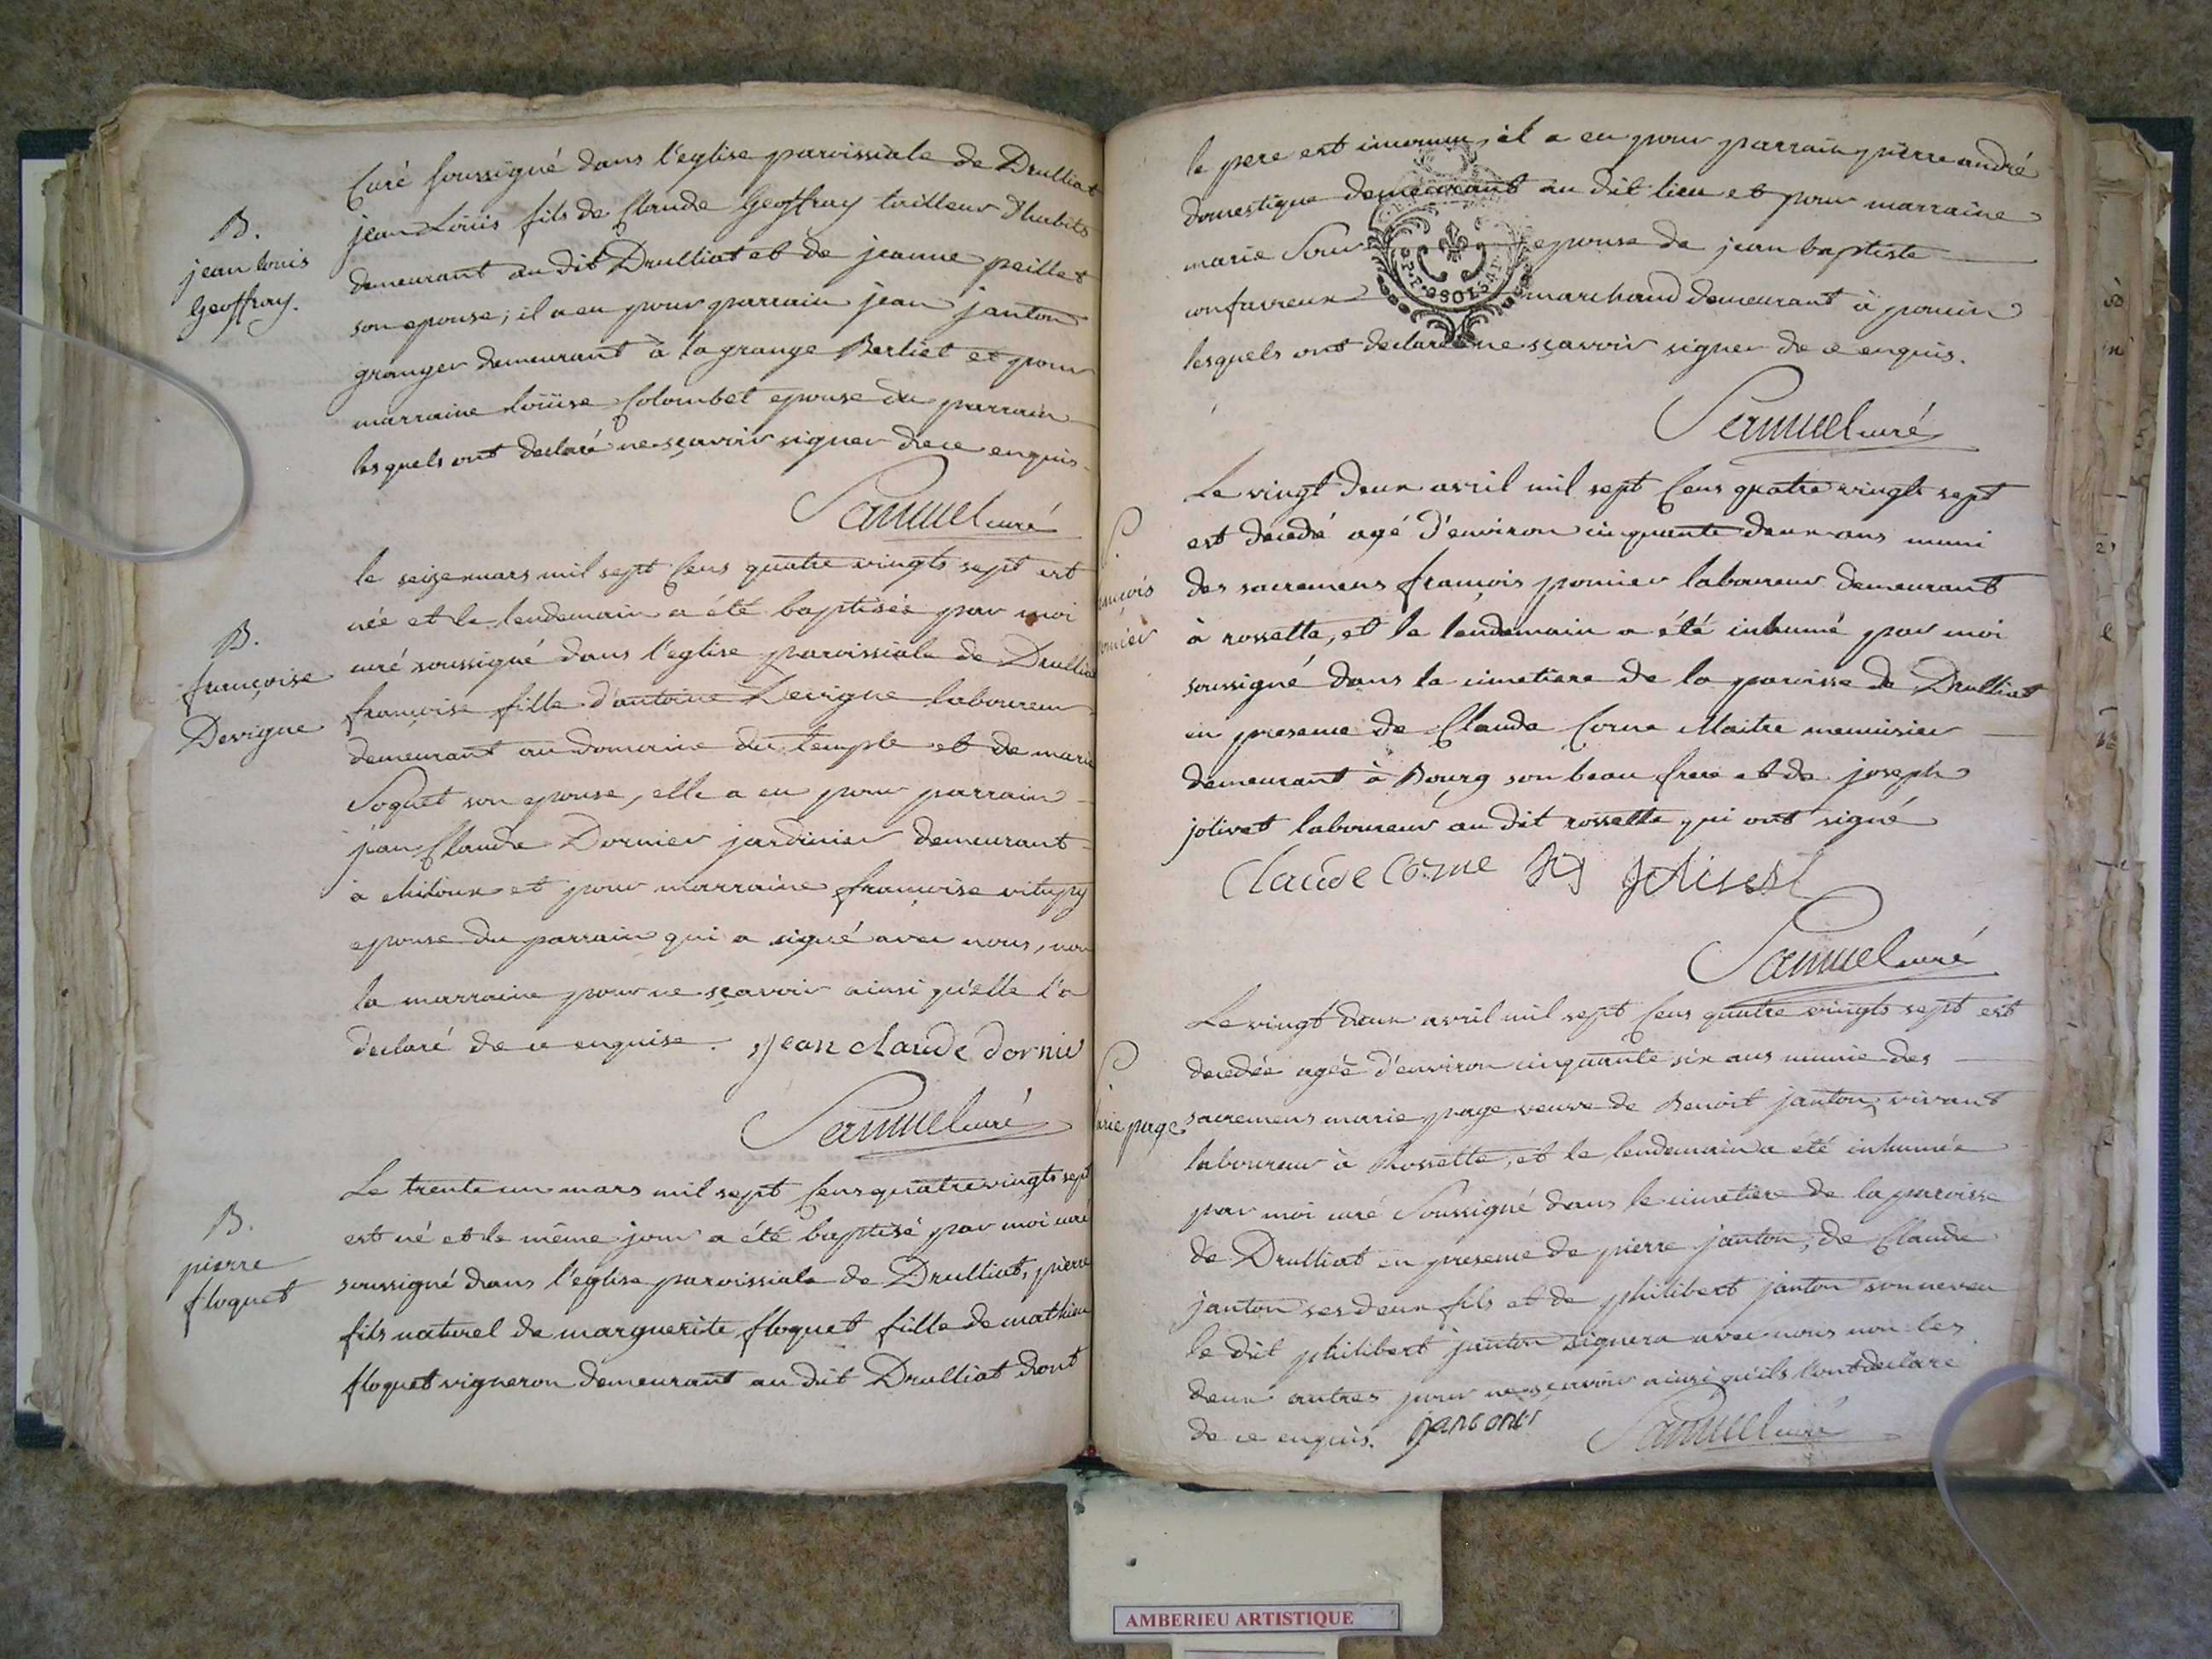 Curé soussigné dans l'eglise paroissiale de Drulliat
B.
jean louis
Geoffray.
jean Loüis fils de Claude Geoffray tailleur d'habits
demeurant au dit Drulliat et de jeanne peillet
son epouse; il a eu pour parrain jean janton
granger demeurant à la grange Berliet et pour
marraine loüise Colombet epouse du parrain
lesquels ont declaré ne sçavoir signer de ce enquis
Samuel curé
le seize mars mil sept Cens quatre vingts sept est
née et le lendemain a été baptisée par moi
B.
françoise
Devigne
curé soussigné dans l'eglise paroissiale de Drulliat
françoise fille d'antoine Devigne laboureur
demeurant au domaine du temple et de marie
Soquet son epouse, elle a eu pour parrain
jean Claude Dornier jardinier demeurant
à chiloux et pour marraine françoise vitupy
epouse du parrain qui a signé avec nous, non
la marraine pour ne sçavoir ainsi qu'elle l'a
declaré de ce enquise. jean claude dornier
Samuel curé
Le trente un mars mil sept Cens quatre vingts sept
B.
pierre
floquet
est né et le même jour a été baptisé par moi curé
soussigné dans l'eglise paroissiale de Drulliat, pierre
fils naturel de marguerite floquet fille de mathieu
floquet vigneron demeurant au dit Drulliat dont
le pere est inconnu, il a eu pour parrain pierre andré
domestique demeurant au dit lieu et pour marraine
marie epouse de jean baptiste
confavreux marchand demeurant à poncin
lesquels ont declaré ne sçavoir signer de ce enquis.
Samuel curé
Le vingt deux avril mil sept Cens quatre vingts sept
est decedé agé d'environ cinquante deux ans muni
S.
ançois
omier
des sacremens françois pomier laboureur demeurant
à rossette, et le lendemain a été inhumé par moi
soussigné dans la cimetiere de la paroisse de Drulliat
en presence de Claude Corne Maitre menuisier
demeurant à Bourg son beau frere et de joseph
jolivet laboureur au dit rossette qui ont signé
Claude Corne
Samuel curé
Le vingt deux avril mil sept Cens quatre vingts sept est
decedée agée d'environ cinquante six ans munie des
S.
arie page
sacremens marie page veuve de Benoit janton, vivant
laboureur à Rossette, et le lendemain a été inhumée
par moi curé Soussigné dans le cimetiere de la paroisse
de Drulliat en presence de pierre janton, de Claude
janton ses deux fils et de philibert janton son neveu
le dit philibert janton signera avec nous non les
deux autres pour ne sçavoir ainsi qu'ils l'ont declaré
de ce enquis. janton
Samuel curé
AMBERIEU ARTISTIQUE